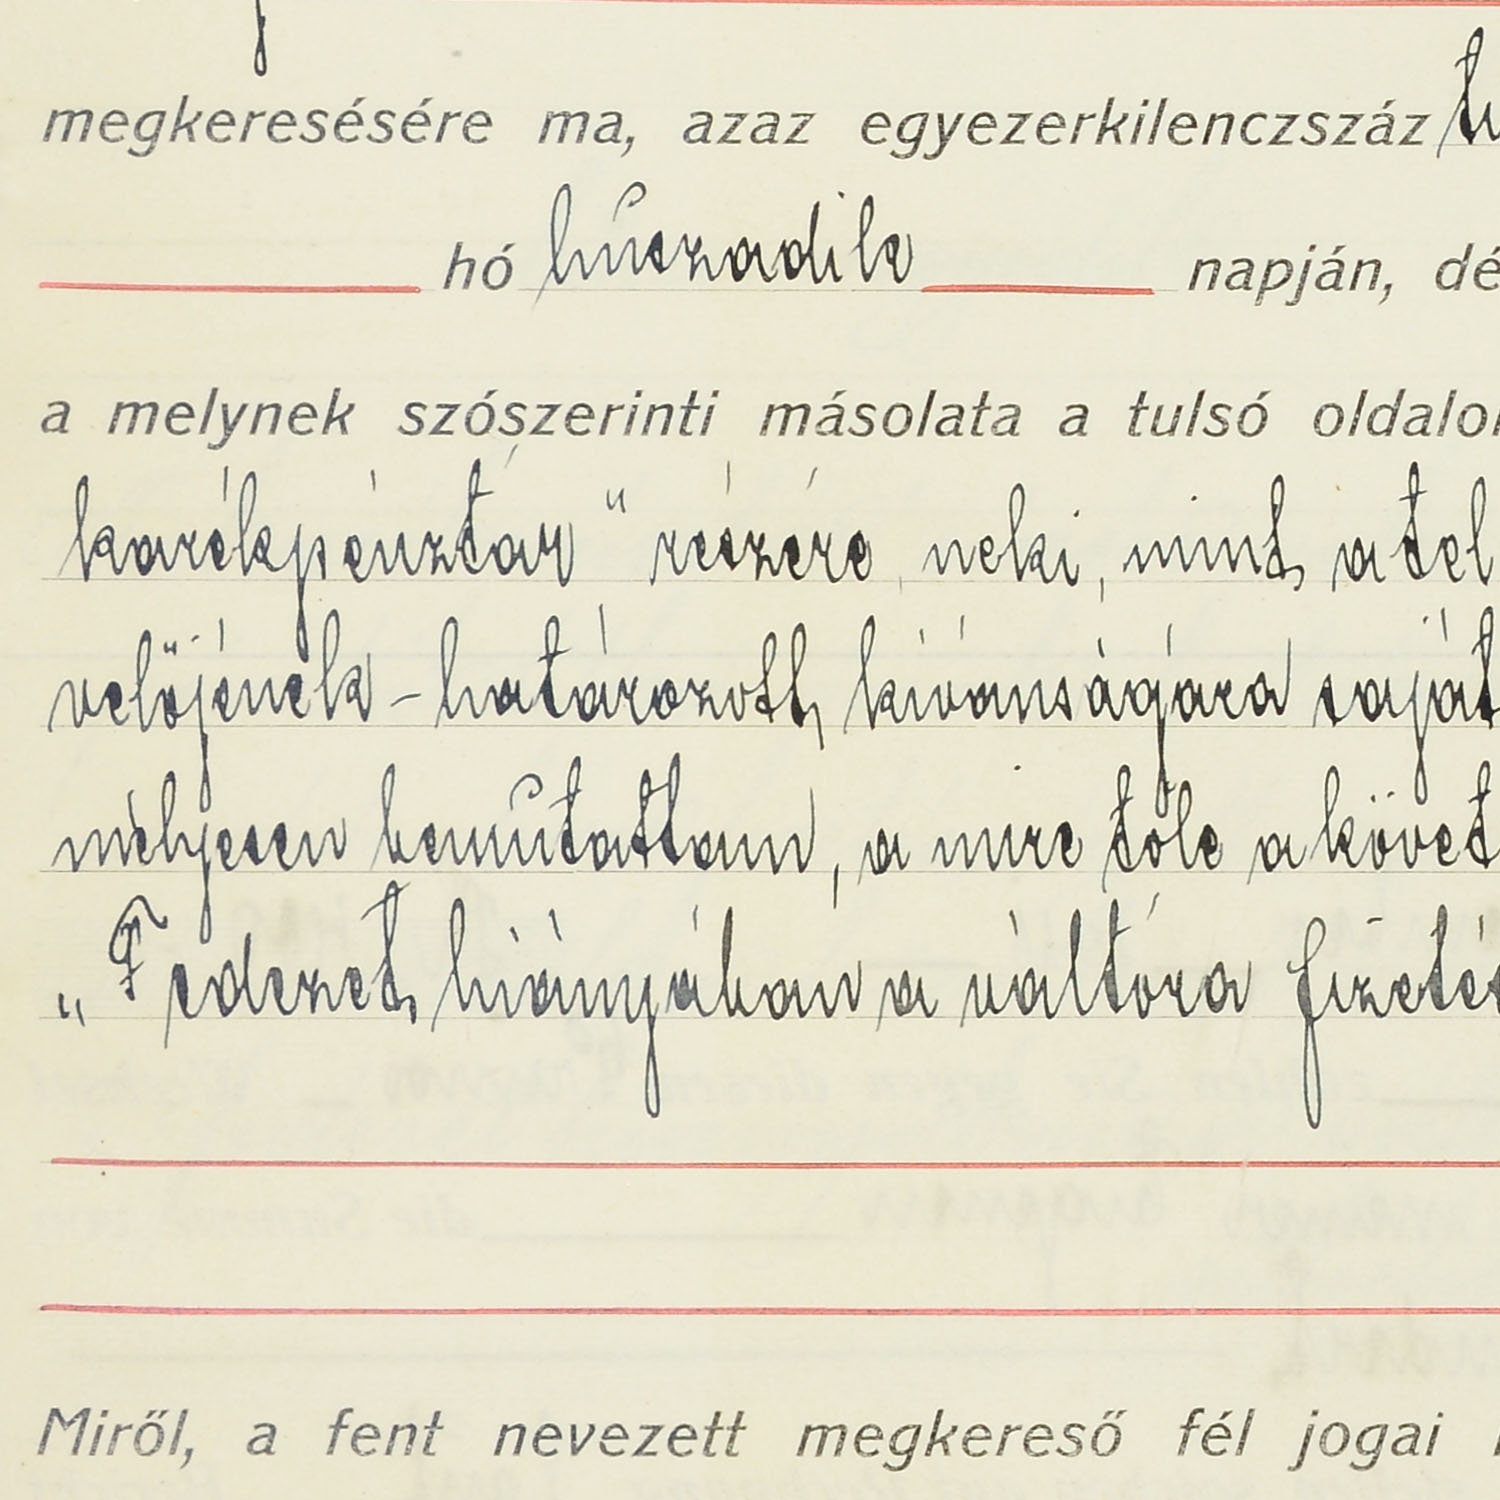 megkeresésére ma, azaz egyezerkilenczszáz
hó húszadik napján, dé
a melynek szószerinti másolata a tulsó oldalon
karékpénztár" részére, neki, mint a tel
velőjének - határozott kívánságára saját
mélyesen bemutattam, a mire tőle a követ
„Fedezet hiányában a váltóra fizetés
Miről, a fent nevezett megkereső fél jogai